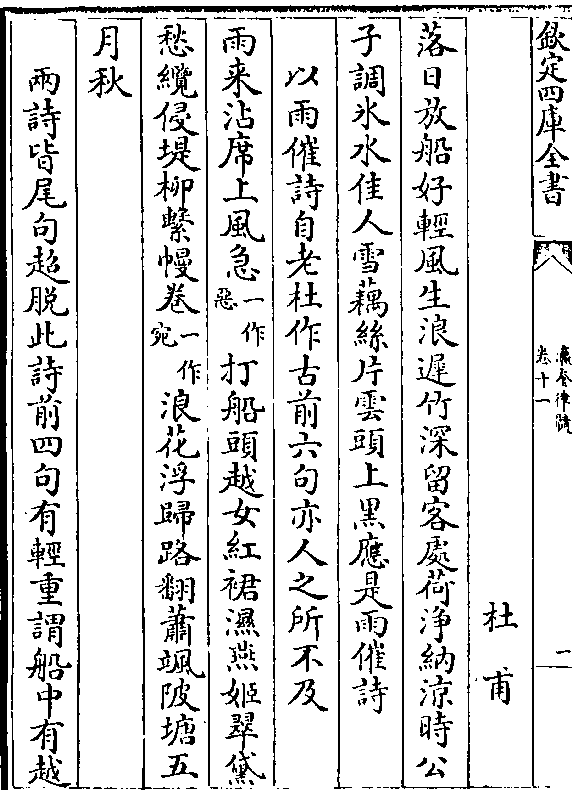 欽定四庫全書
瀛奎律髓
卷十一
一
杜甫
落日放船好輕風生浪遲竹深留客處荷淨納涼時公
子調氷水佳人雪藕絲片雲頭上黒應是雨催詩
以雨催詩自老杜作古前六句亦人之所不及
雨来沾席上風急一作惡打船頭越女紅裙濕燕姬翠黛
愁纜侵堤柳繫幔卷一作宛浪花浮歸路翻蕭颯陂塘五
月秋
兩詩皆尾句超脱此詩前四句有輕重謂船中有越